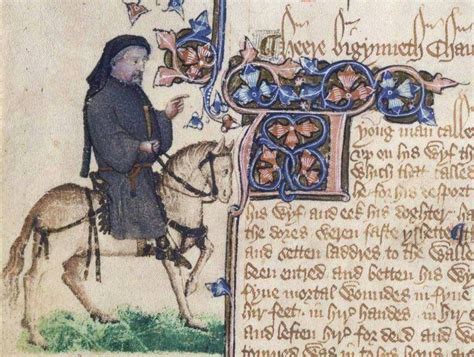 Heere bigynneth Chau
yong man calle
up on his wyf
Which that called
he for his desport
his wyf and eek his doghter
the dores weren faste yshette
and setten laddres to the walle
been entred and betten his
fyue mortal woundes in fyue
hir feet in hir handes in hir
and leften hir for deed and
tourned was in to his hous